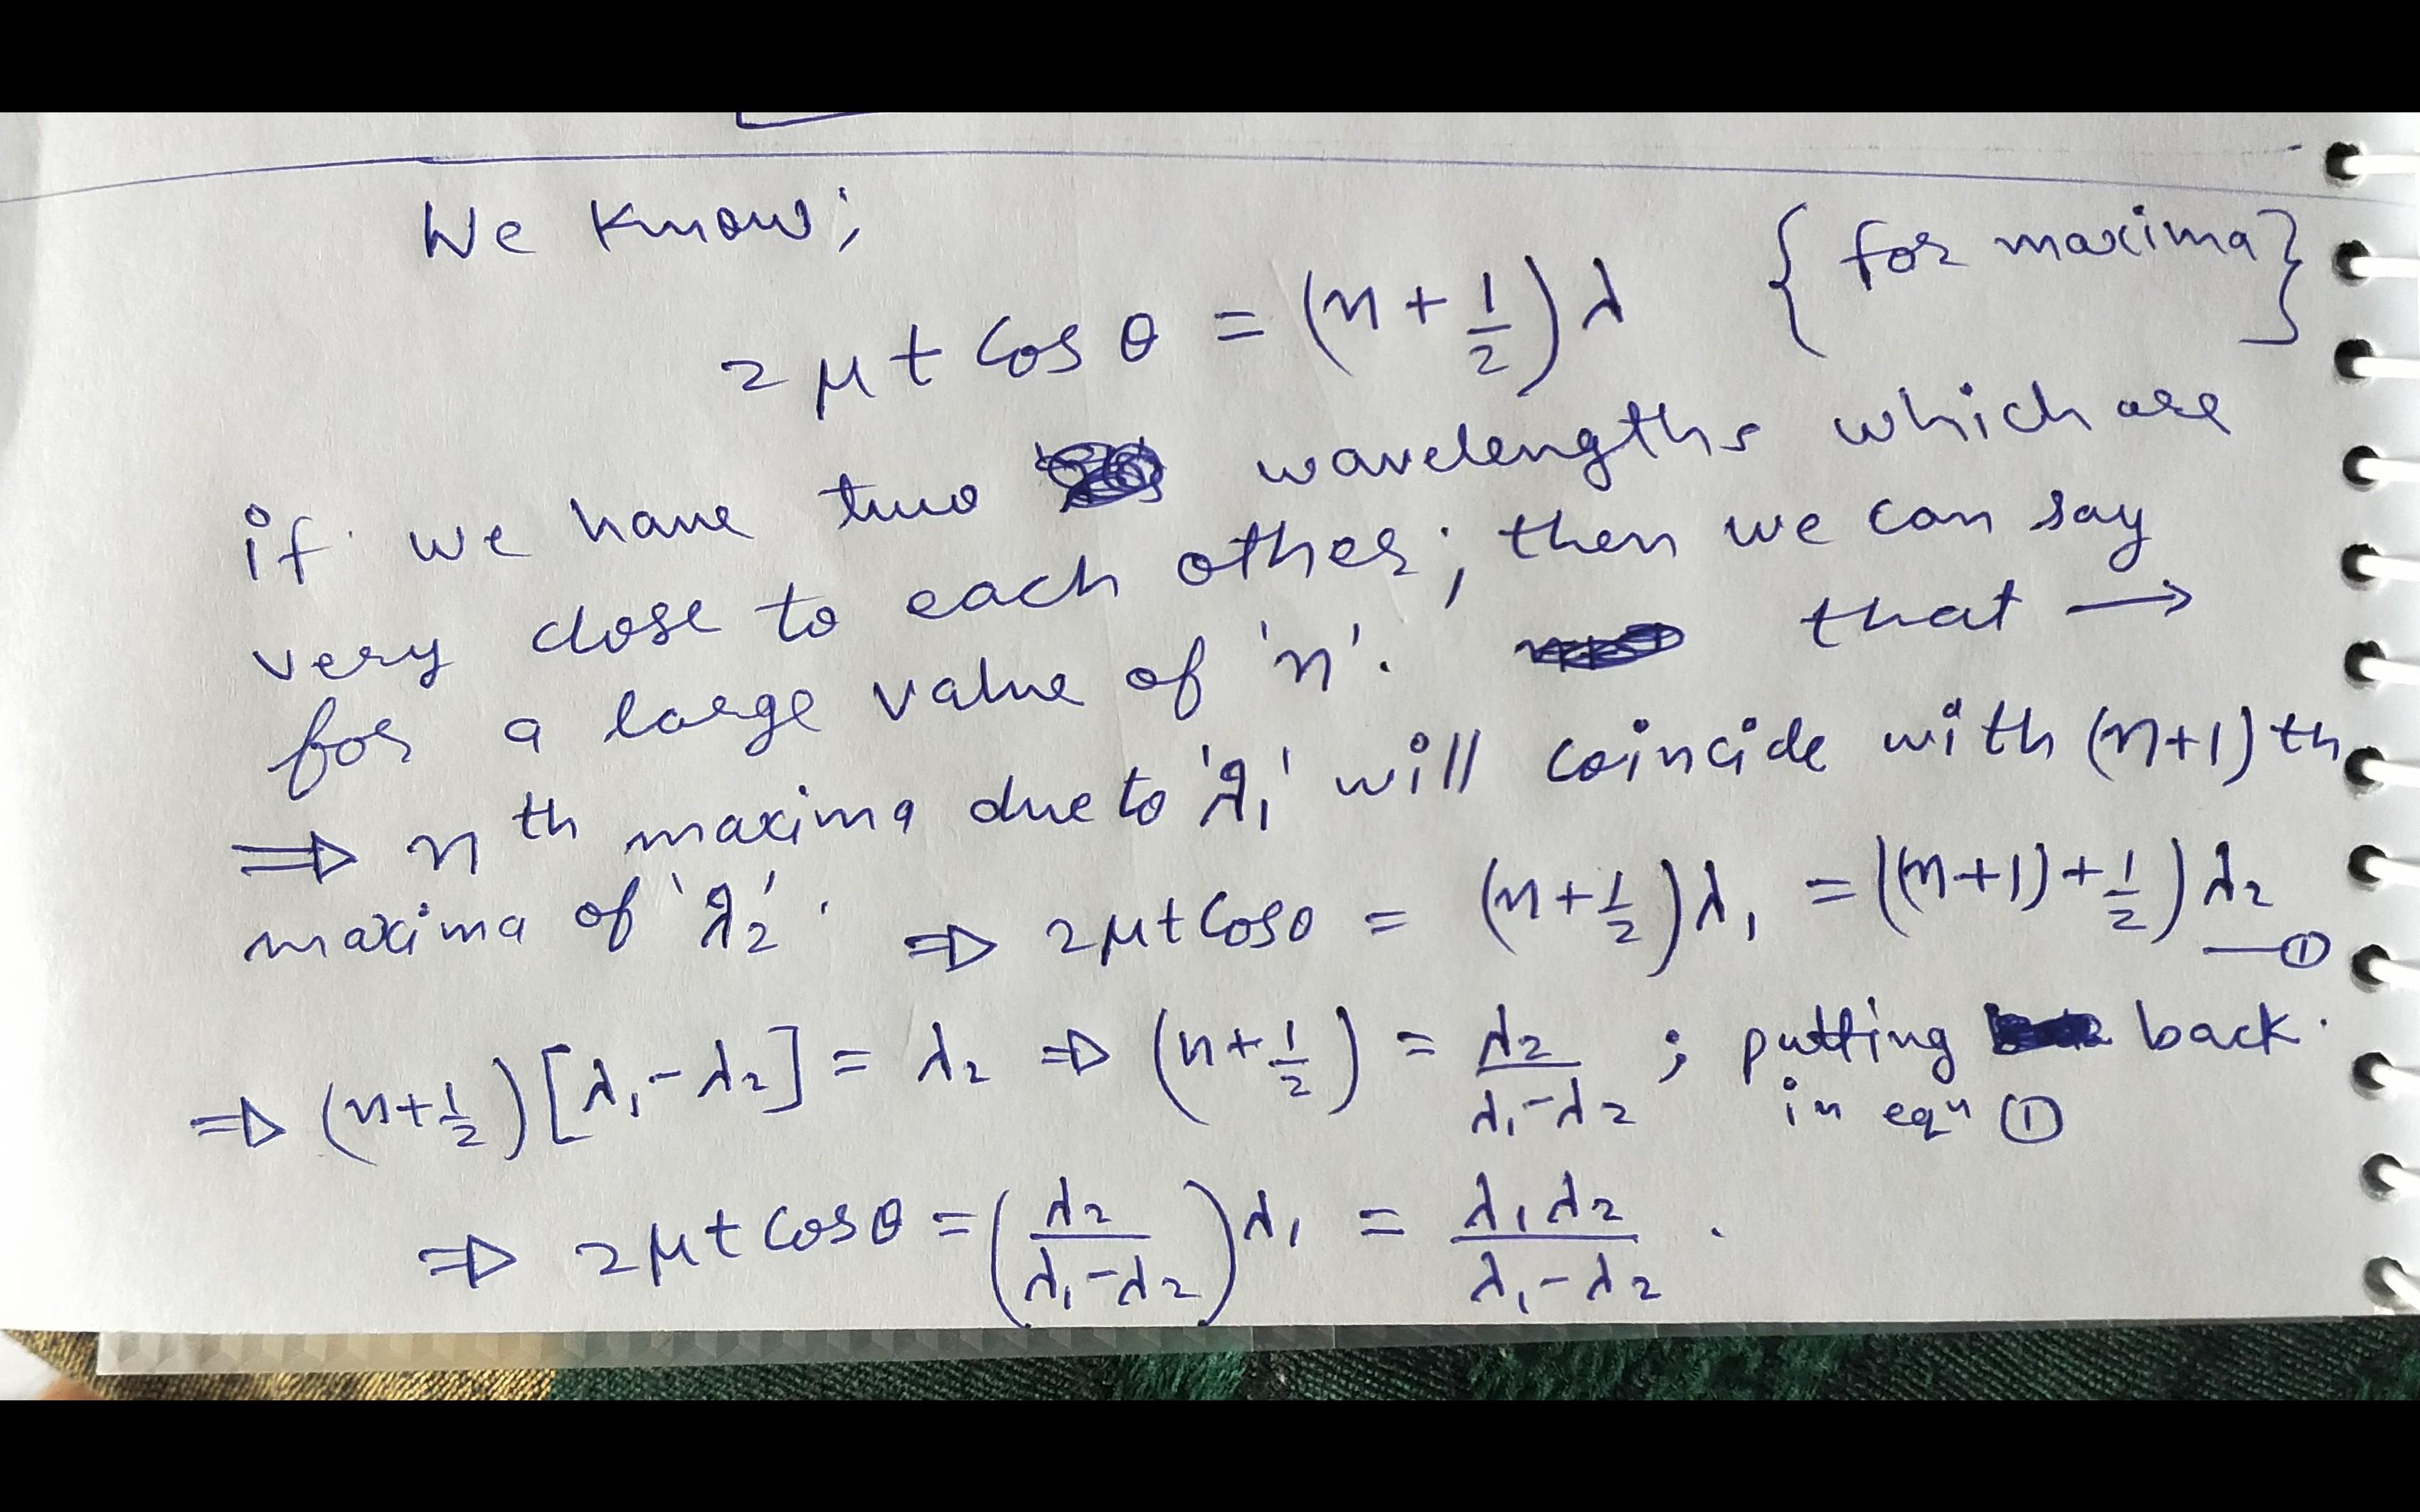 We know;
2μt cos θ = (n + 1/2) λ {for maxima}
if we have two wavelengths which are
very close to each other; then we can say
for a large value of 'n'. that →
⇒ nth maxima due to 'λ₁' will coincide with (n+1)th
maxima of 'λ₂'. ⇒ 2μt cos θ = (n + 1/2) λ₁ = ((n+1) + 1/2) λ₂ —①
⇒ (n + 1/2) [λ₁ - λ₂] = λ₂ ⇒ (n + 1/2) = λ₂/(λ₁ - λ₂) ; putting back.
in eqⁿ ①
⇒ 2μt cos θ = (λ₂/(λ₁ - λ₂)) λ₁ = λ₁λ₂/(λ₁ - λ₂) .